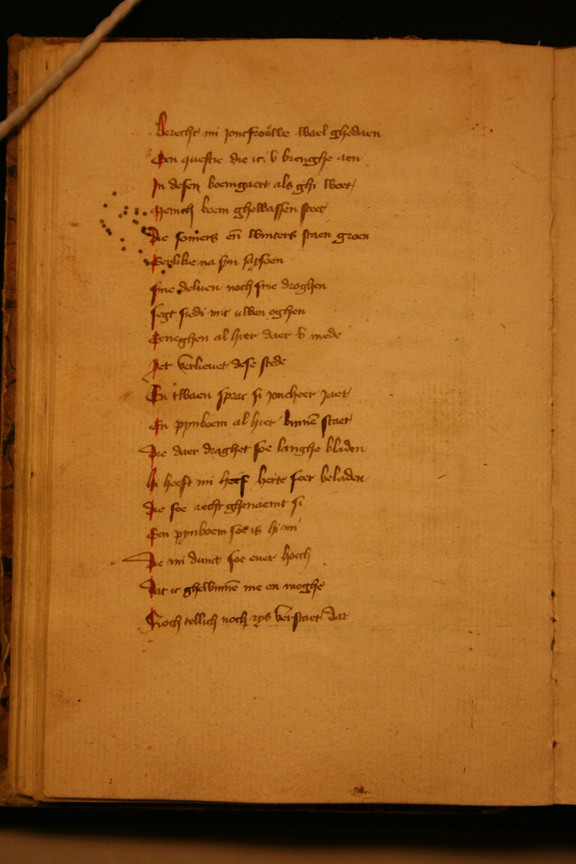 Berecht mi joncfrouwe wael ghedaen
Een questie die ic v brenghe aen
In desen boemgaert als ghi weet
Menich boem ghewassen steet
Die somers en winters staen groen
na syn
sine deluen noch sine droghen
segt siedi mit uwen oghen
Eeneghen al hier daer v mede
Jet verlieuet dese stede
En twaen sprac si joncheer jaet
En pynboem al hier binnē staet
Die daer draghet soe langhe bladen
Hi heeft mi heef herte seer beladen
Die soe recht ghenaemt si
Een pynboem soe is hi mi
Die mi dunct soe euer hoech
Dat ic ghewinnē ne en moghe
Noch tellich noch rys verstaet dat